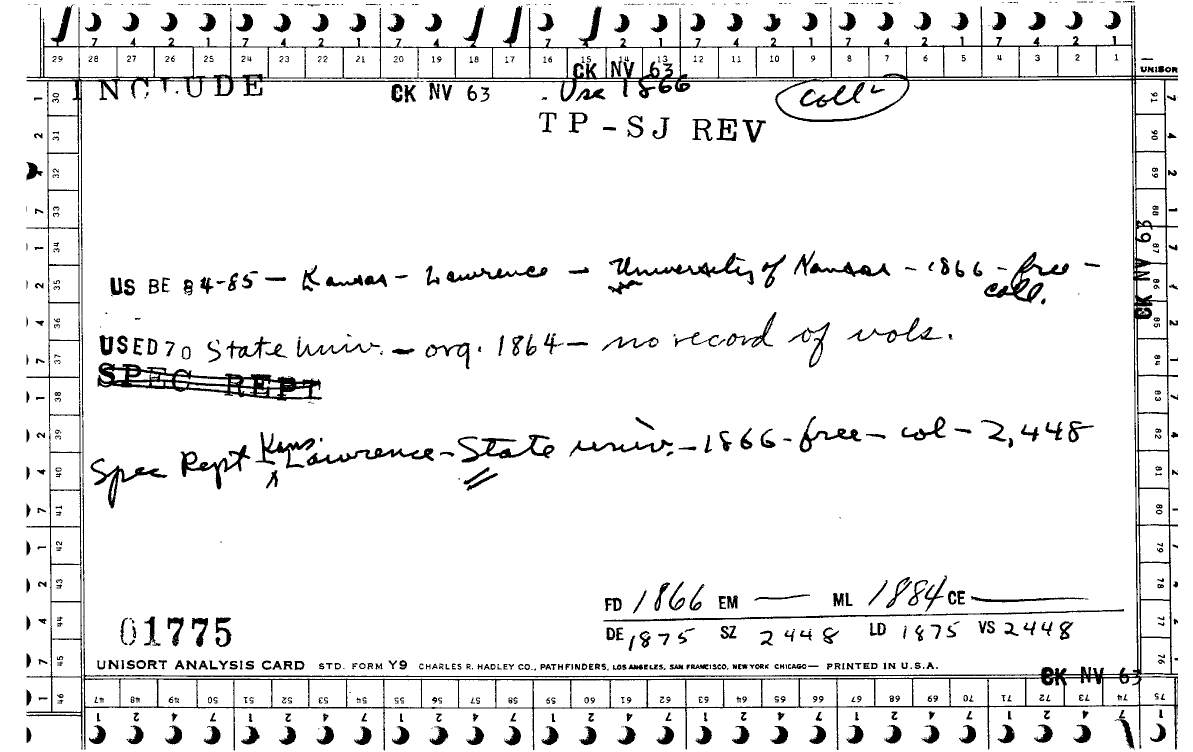 7 4 2 1 7 4 2 1 7 4 2 1 7 4 2 1 7 4 2 1 7 4 2 1
29 28 27 26 25 24 23 22 21 20 19 18 17 16 15 14 13 12 11 10 9 8 7 6 5 4 3 2 1
UNISOR
CK NV 63
INCLUDE CK NV 63 . Use 1866 Coll
TP-SJ REV
US BE 84-85 — Kansas — Lawrence — University of Kansas — 1866 — free — coll.
USED 70 State Univ. — org. 1864 — no record of vols.
SPEC REPT
Spec Rept Kans. Lawrence - State univ. - 1866 - free - col - 2,448
FD 1866 EM — ML 1884 CE —
DE 1875 SZ 2448 LD 1875 VS 2448
01775
UNISORT ANALYSIS CARD STD. FORM Y9 CHARLES R. HADLEY CO., PATHFINDERS, LOS ANGELES, SAN FRANCISCO, NEW YORK CHICAGO— PRINTED IN U.S.A.
CK NV 63
CK NV 63
30 31 32 33 34 35 36 37 38 39 40 41 42 43 44 45 46
47 48 49 50 51 52 53 54 55 56 57 58 59 60 61 62 63 64 65 66 67 68 69 70 71 72 73 74 75
91 90 89 88 87 86 85 84 83 82 81 80 79 78 77 76